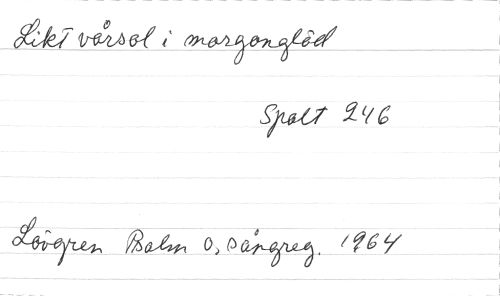 Likt vårsol i morgonglöd
Spalt 246
Lövgren Psalm o, sångreg. 1964